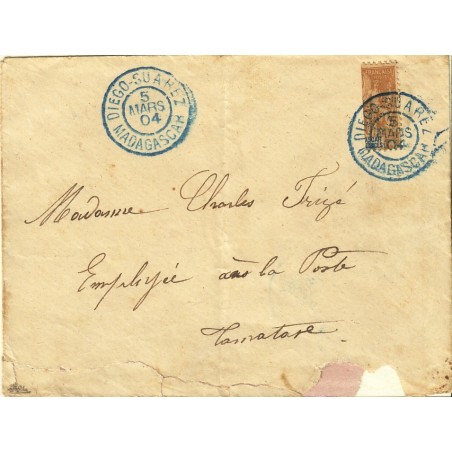 DIEGO-SUAREZ
5
MARS
04
MADAGASCAR
DIEGO-SUAREZ
5
MARS
04
MADAGASCAR
Madame Charles
Employée à la Poste
Tamatave